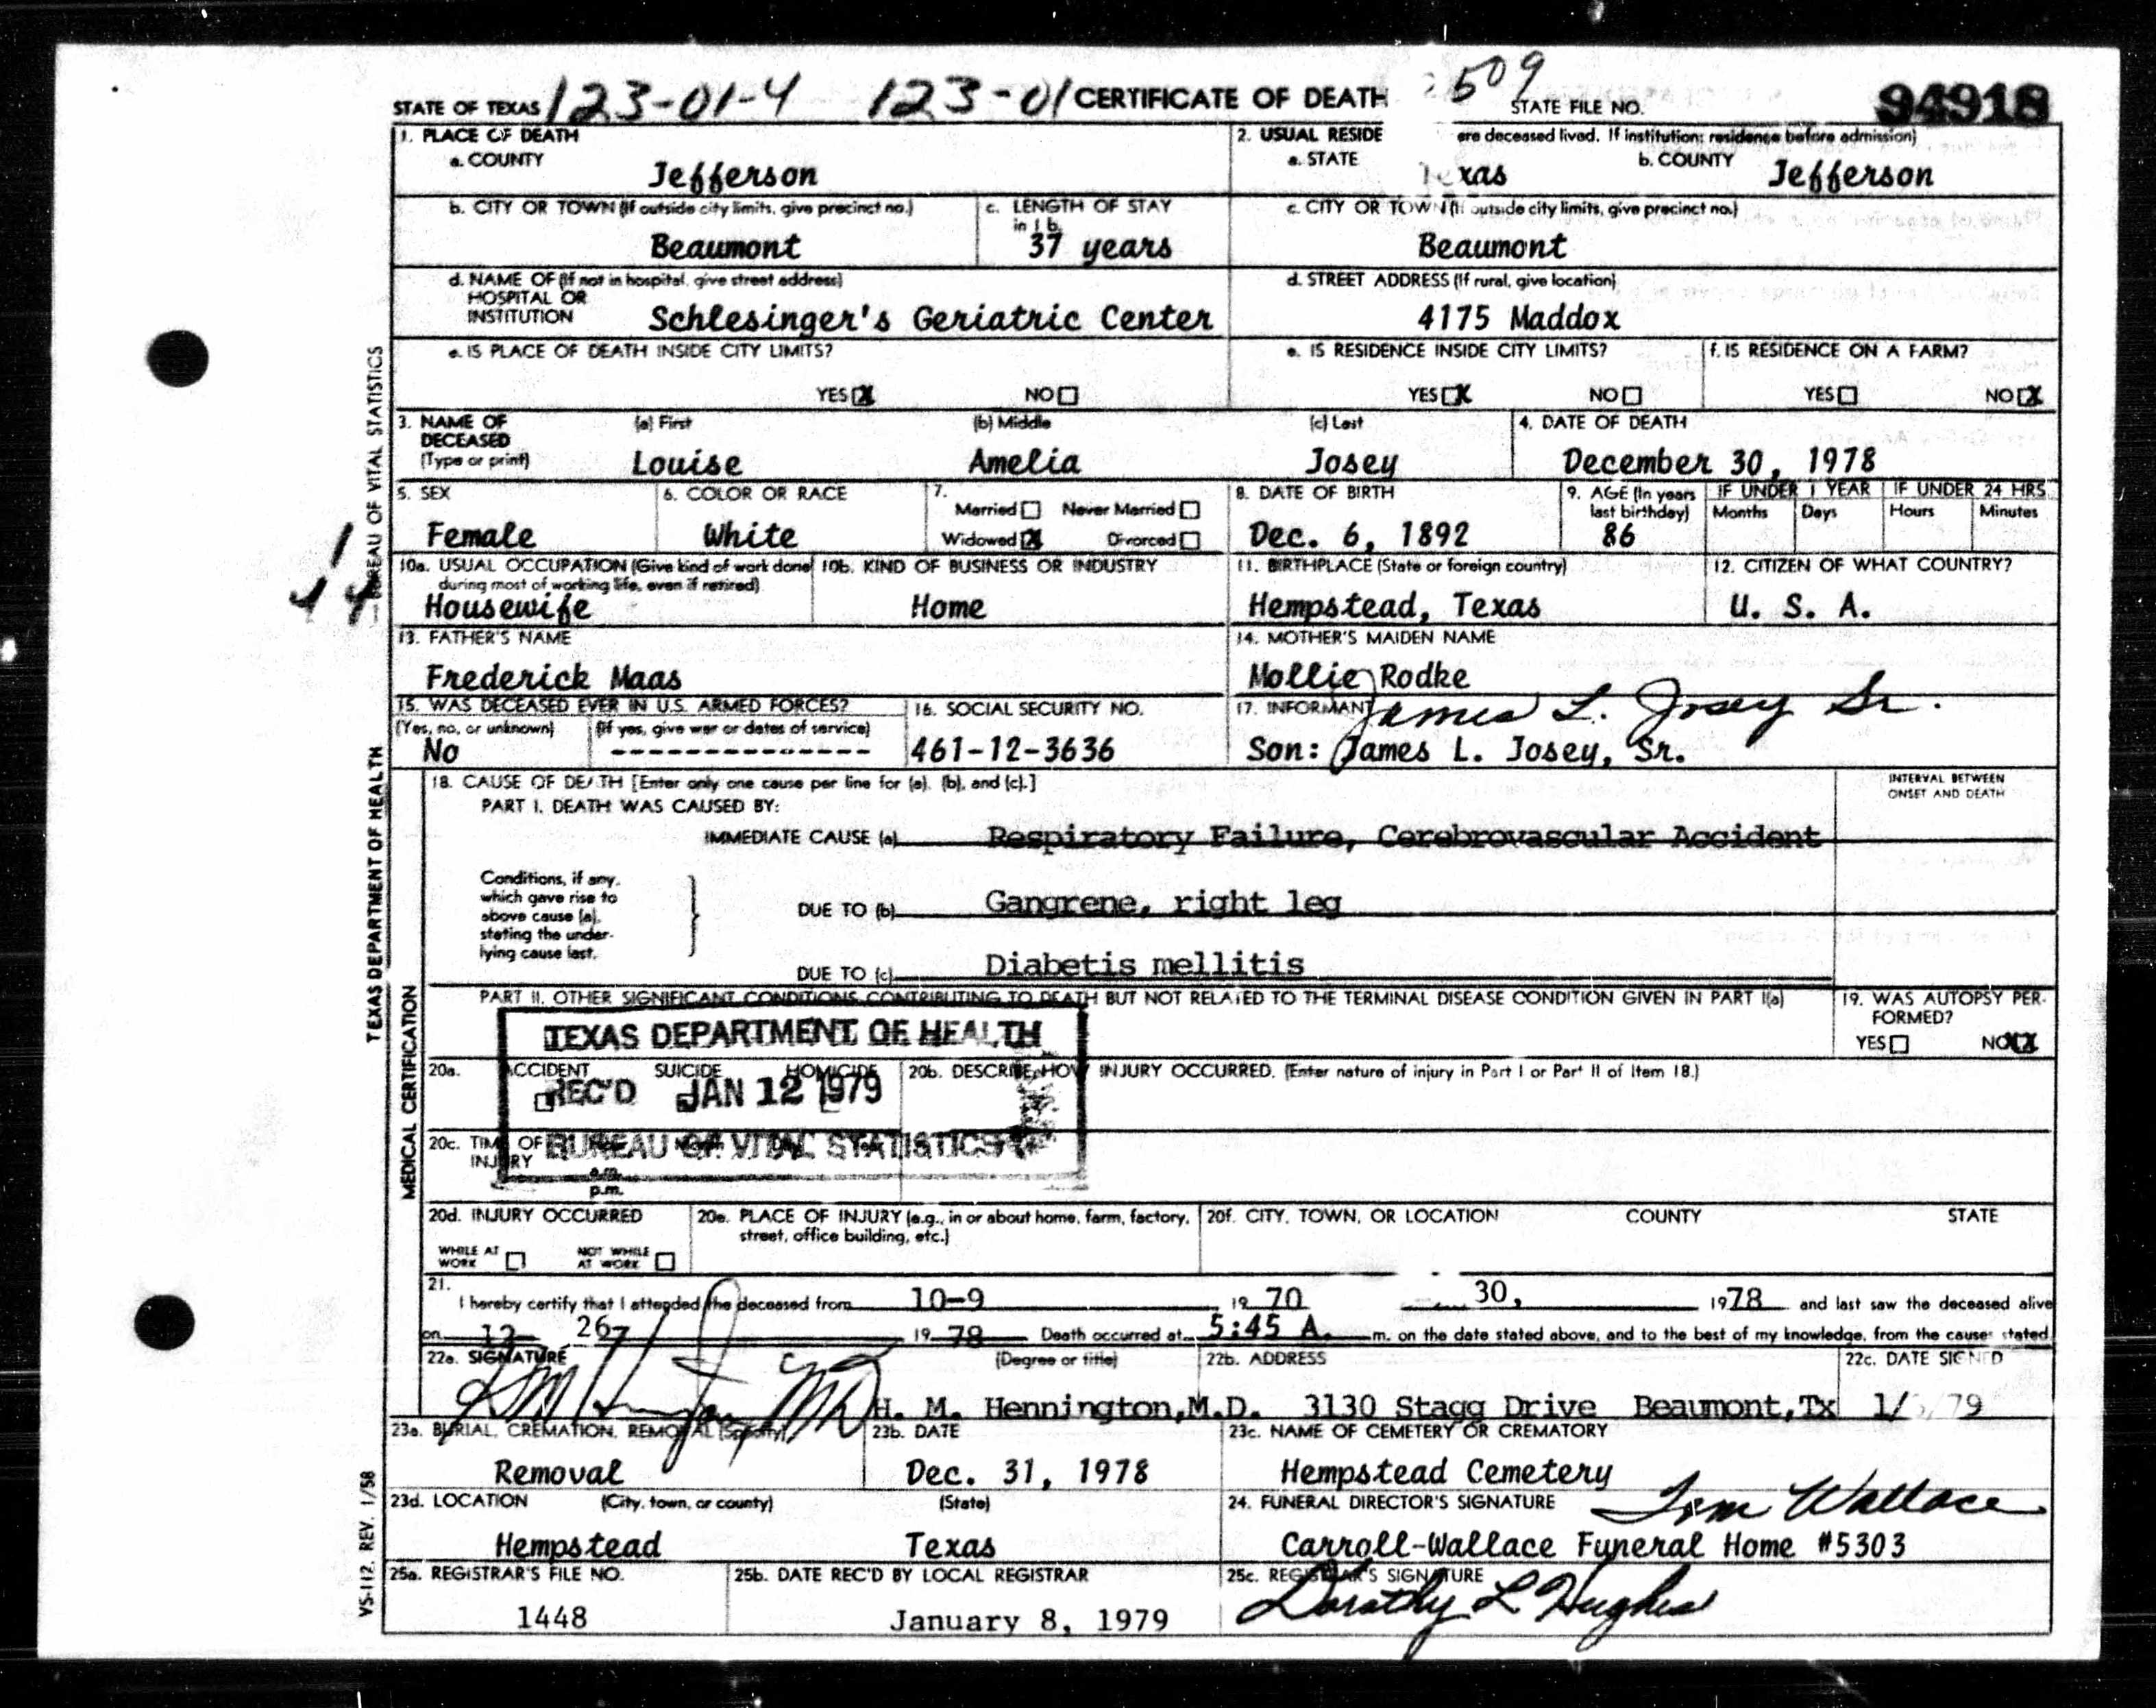 STATE OF TEXAS 123-01-4 123-01 CERTIFICATE OF DEATH 509 STATE FILE NO. 94918
1. PLACE OF DEATH
a. COUNTY
Jefferson
2. USUAL RESIDE ere deceased lived. If institution: residence before admission)
a. STATE
xas
b. COUNTY
Jefferson
b. CITY OR TOWN (If outside city limits, give precinct no.)
Beaumont
c. LENGTH OF STAY
in 1b.
37 years
c. CITY OR TOWN (If outside city limits, give precinct no.)
Beaumont
d. NAME OF (If not in hospital, give street address)
HOSPITAL OR
INSTITUTION
Schlesinger's Geriatric Center
d. STREET ADDRESS (If rural, give location)
4175 Maddox
e. IS PLACE OF DEATH INSIDE CITY LIMITS?
YES X NO
e. IS RESIDENCE INSIDE CITY LIMITS?
YES X NO
f. IS RESIDENCE ON A FARM?
YES NO X
3. NAME OF
DECEASED
(Type or print)
(a) First
Louise
(b) Middle
Amelia
(c) Last
Josey
4. DATE OF DEATH
December 30, 1978
5. SEX
Female
6. COLOR OR RACE
White
7.
Married Never Married
Widowed X Divorced
8. DATE OF BIRTH
Dec. 6, 1892
9. AGE (In years
last birthday)
86
IF UNDER 1 YEAR
Months Days
IF UNDER 24 HRS
Hours Minutes
10a. USUAL OCCUPATION (Give kind of work done
during most of working life, even if retired)
Housewife
10b. KIND OF BUSINESS OR INDUSTRY
Home
11. BIRTHPLACE (State or foreign country)
Hempstead, Texas
12. CITIZEN OF WHAT COUNTRY?
U. S. A.
13. FATHER'S NAME
Frederick Maas
14. MOTHER'S MAIDEN NAME
Mollie Rodke
15. WAS DECEASED EVER IN U.S. ARMED FORCES?
(Yes, no, or unknown) (If yes, give war or dates of service)
No --------------
16. SOCIAL SECURITY NO.
461-12-3636
17. INFORMANT James L. Josey Sr.
Son: James L. Josey, Sr.
18. CAUSE OF DEATH [Enter only one cause per line for (a), (b), and (c).]
INTERVAL BETWEEN
ONSET AND DEATH
PART I. DEATH WAS CAUSED BY:
IMMEDIATE CAUSE (a) Respiratory Failure, Cerebrovascular Accident
Conditions, if any,
which gave rise to
above cause (a),
stating the under-
lying cause last.
DUE TO (b) Gangrene, right leg
DUE TO (c) Diabetis mellitis
PART II. OTHER SIGNIFICANT CONDITIONS CONTRIBUTING TO DEATH BUT NOT RELATED TO THE TERMINAL DISEASE CONDITION GIVEN IN PART I(a)
19. WAS AUTOPSY PER-
FORMED?
YES NO X
TEXAS DEPARTMENT OF HEALTH
REC'D JAN 12 1979
BUREAU OF VITAL STATISTICS
20a. ACCIDENT SUICIDE HOMICIDE
20b. DESCRIBE HOW INJURY OCCURRED. (Enter nature of injury in Part I or Part II of Item 18.)
20c. TIME OF
INJURY
a.m.
p.m.
20d. INJURY OCCURRED
WHILE AT
WORK
NOT WHILE
AT WORK
20e. PLACE OF INJURY (e.g., in or about home, farm, factory,
street, office building, etc.)
20f. CITY, TOWN, OR LOCATION COUNTY STATE
21.
I hereby certify that I attended the deceased from 10-9 19 70 30, 1978 and last saw the deceased alive
on 12 26 19 78 Death occurred at 5:45 A. m. on the date stated above, and to the best of my knowledge, from the causes stated.
22a. SIGNATURE (Degree or title)
H. M. Hennington, M.D.
22b. ADDRESS
3130 Stagg Drive Beaumont, Tx
22c. DATE SIGNED
1/ /79
23a. BURIAL, CREMATION, REMOVAL (Specify)
Removal
23b. DATE
Dec. 31, 1978
23c. NAME OF CEMETERY OR CREMATORY
Hempstead Cemetery
23d. LOCATION (City, town, or county) (State)
Hempstead Texas
24. FUNERAL DIRECTOR'S SIGNATURE Jim Wallace
Carroll-Wallace Funeral Home #5303
25a. REGISTRAR'S FILE NO.
1448
25b. DATE REC'D BY LOCAL REGISTRAR
January 8, 1979
25c. REGISTRAR'S SIGNATURE
Dorothy L Hughes
TEXAS DEPARTMENT OF HEALTH — BUREAU OF VITAL STATISTICS
MEDICAL CERTIFICATION
VS-112 REV. 1/58